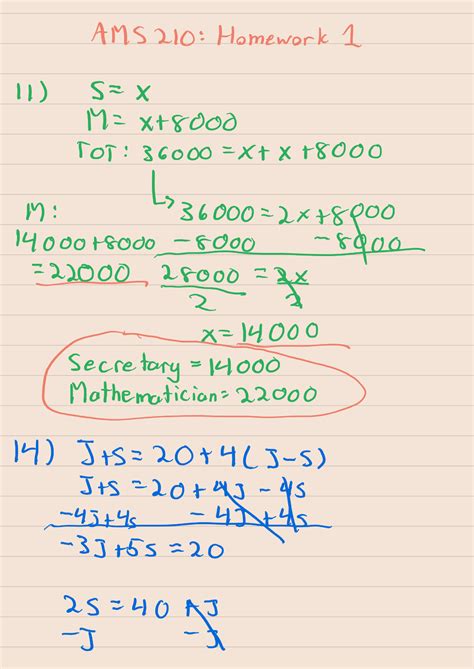 AMS 210: Homework 1
11) S = x
M = x+8000
TOT: 36000 = x + x + 8000
↳ 36000 = 2x + 8000
M:
14000+8000
= 22000
-8000 -8000
28000 = 2x
2 2
x = 14000
Secretary = 14000
Mathematician = 22000
14) J+S = 20+4(J-S)
J+S = 20+4J-4S
-4J+4S -4J+4S
-3J+5S = 20
2S = 40 + J
-J -J